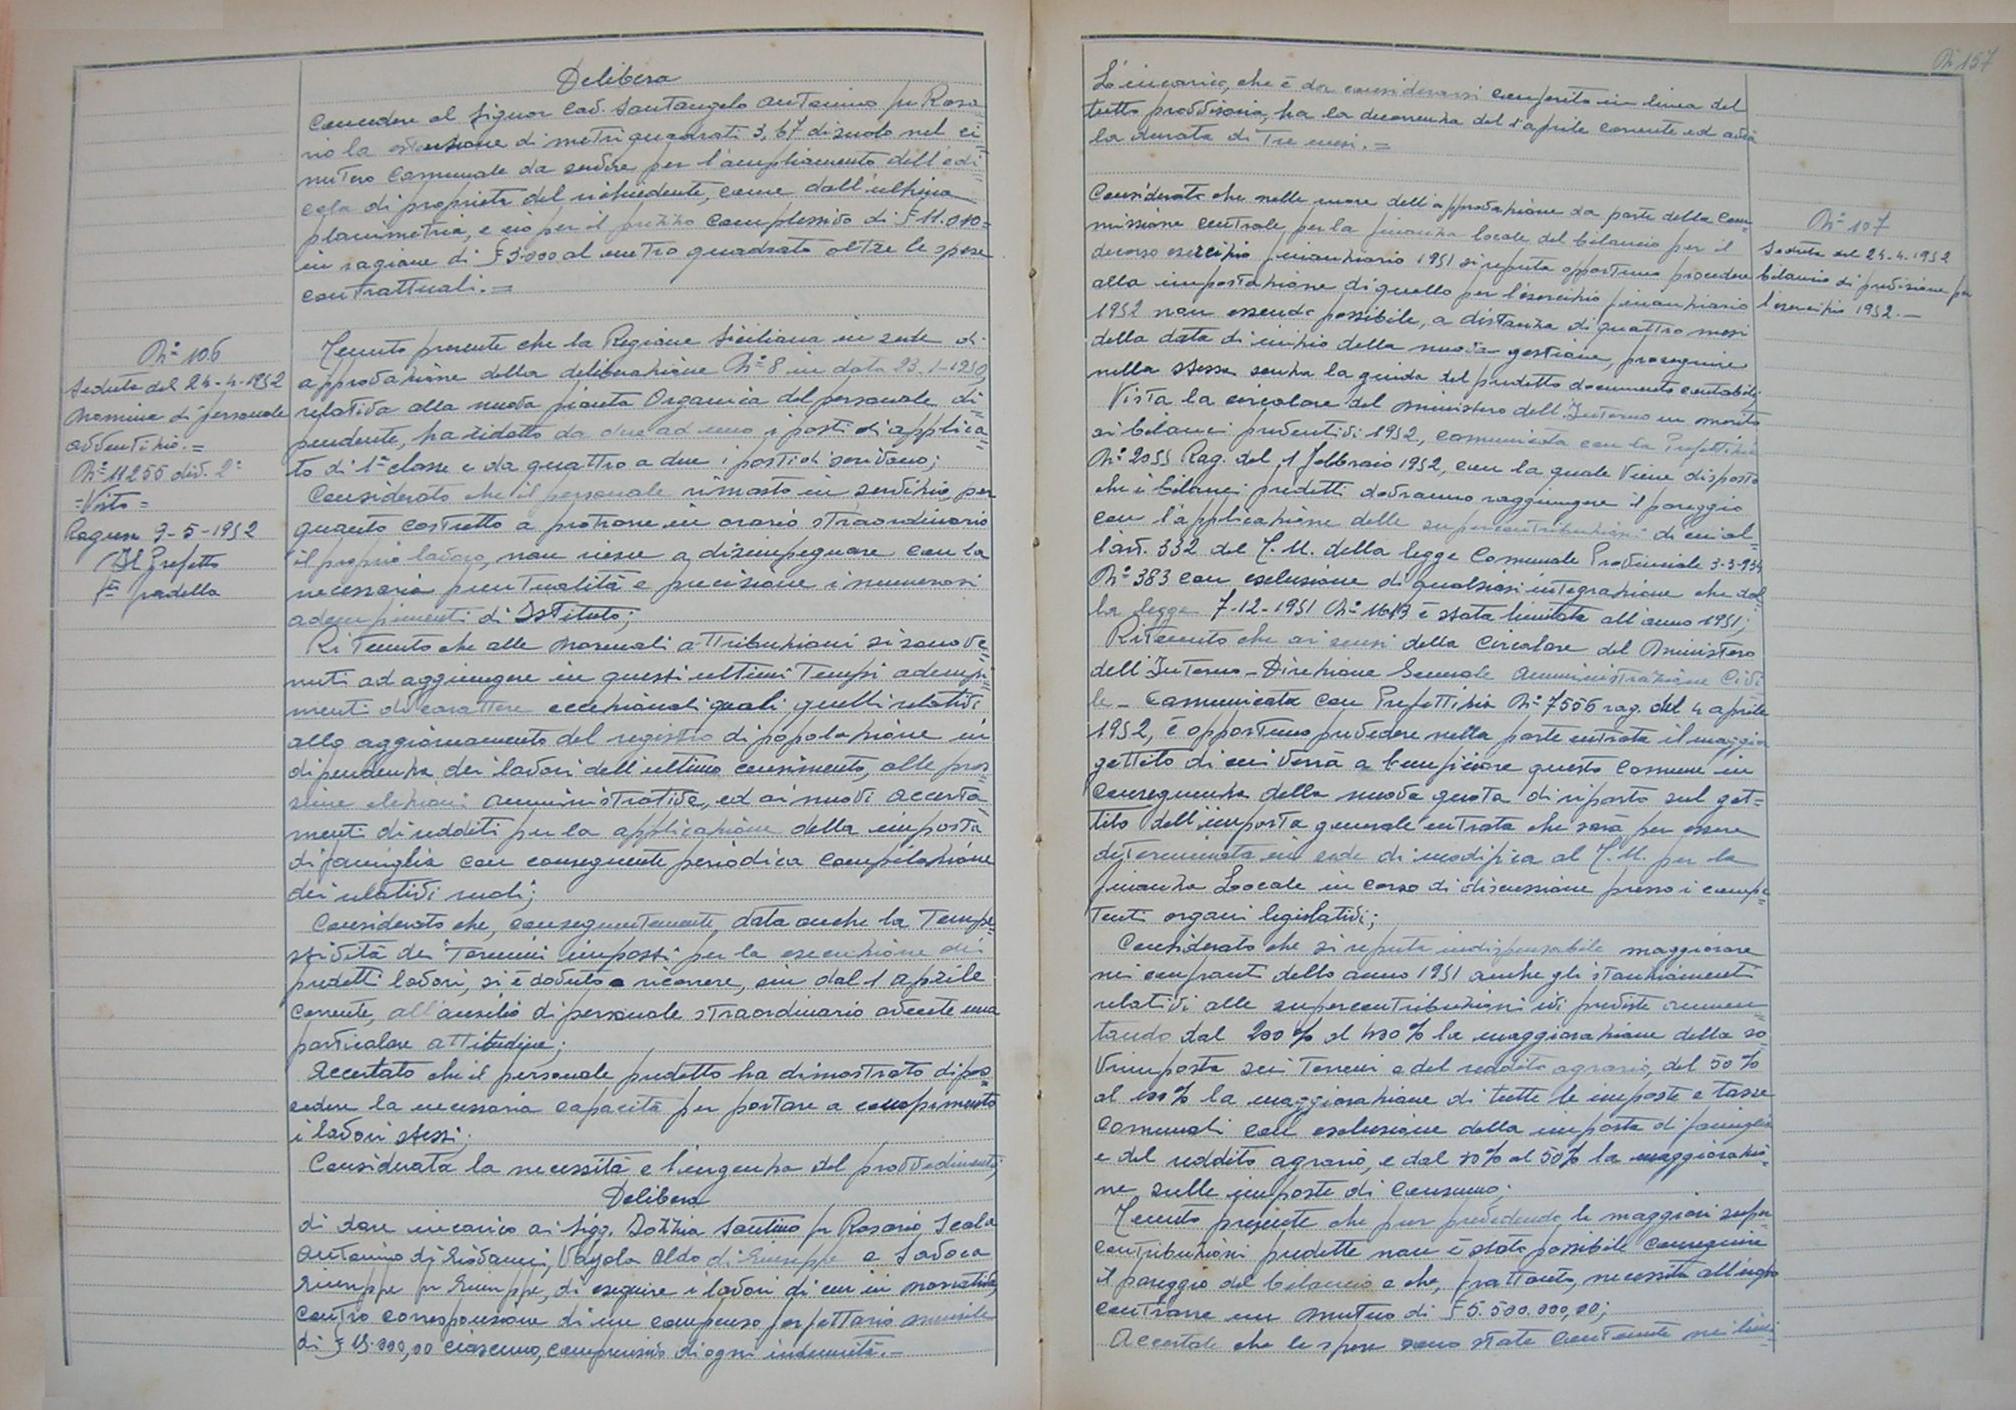 Delibera
Concedere al Signor Cav. Santangelo Antonino fu Rosa
rio la estensione di metri quadrati 3,67 di suolo nel ci=
mitero Comunale da servire per l'ampliamento dell'edi=
cola di proprietà del richiedente, come dall'
planimetria, e ciò per il prezzo complessivo di £ 11.010=
in ragione di £ 3.000 al metro quadrato oltre le spese
contrattuali.=
N° 106
Seduta del 24-4-1952
Nomina di personale
avventizio.=
N° 11255 div. 2ª
=Visto=
Ragusa 9-5-1952
Il Prefetto
Fto Padella
Tenuto presente che la Regione Siciliana in sede di
approvazione della deliberazione N° 8 in data 23-1-1950,
relativa alla nuova pianta Organica del personale di=
pendente, ha ridotto da due ad uno i posti di applica=
to di 1ª classe e da quattro a due i posti di scrivano;
Considerato che il personale rimasto in servizio, per
quanto costretto a protrarre in orario straordinario
il proprio lavoro, non riesce a disimpegnare con la
necessaria puntualità e precisione i numerosi
adempimenti di Istituto;
Ritenuto che alle normali attribuzioni si sono ve=
nuti ad aggiungere in questi ultimi tempi adempi=
menti di carattere eccezionali quali quelli relativi
allo aggiornamento del registro di popolazione in
dipendenza dei lavori dell'ultimo censimento, alle pros=
sime elezioni amministrative, ed ai nuovi accerta
menti di redditi per la applicazione della imposta
di famiglia con conseguente periodica compilazione
dei relativi ruoli;
Considerato che, conseguentemente, data anche la tempe=
stività dei termini imposti per la esecuzione dei
predetti lavori, si è dovuto ricorrere, sin dal 1 aprile
corrente, all'ausilio di personale straordinario avente una
particolare attitudine;
Accertato che il personale predetto ha dimostrato di pos=
sedere la necessaria capacità per portare a compimento
i lavori stessi;
Considerata la necessità e l'urgenza del provvedimento;
Delibera
di dare incarico ai Sigg. Santino fu Rosario, Scala
Antonino di Giovanni, Vayola Aldo di Giuseppe e Savoca
Giuseppe fu Giuseppe, di eseguire i lavori di cui in narrativa,
contro corresponsione di un compenso forfettario mensile
di £ 15.000,00 ciascuno, comprensivo di ogni indennità.-
N° 157
L'incarico, che è da considerarsi conferito in linea del
tutto provvisoria, ha la decorrenza del 1 aprile corrente ed avrà
la durata di tre mesi.=
N° 107
Seduta del 24-4-1952
bilancio di previsione per
l'esercizio 1952.-
Considerato che nelle more dell'approvazione da parte della Com=
missione centrale per la finanza locale del bilancio per il
decorso esercizio finanziario 1951 si reputa opportuno procedere
alla impostazione di quello per l'esercizio finanziario
1952 non essendo possibile, a distanza di quattro mesi
della data di inizio della nuova gestione, proseguire
nella stessa senza la guida del predetto documento contabile;
Vista la circolare del Ministero dell'Interno in merito
ai bilanci preventivi 1952, comunicata con la Prefettizia
N° 2055 Rag. del 1 febbraio 1952, con la quale viene disposto
che i bilanci predetti dovranno raggiungere il pareggio
con l'applicazione delle supercontribuzioni di cui al=
l'art. 332 del T.U. della legge Comunale Provinciale 3-3-934
N° 383 con esclusione di qualsiasi integrazione che dal=
la legge 7-12-1951 N° 1513 è stata limitata all'anno 1951;
Ritenuto che ai sensi della circolare del Ministero
dell'Interno - Direzione Generale Amministrazione Civi
le - comunicata con Prefettizia N° 7556 rag. del 4 aprile
1952, è opportuno prevedere nella parte entrata il maggior
gettito di cui verrà a beneficiare questo Comune in
conseguenza della nuova quota di riparto sul get=
tito dell'imposta generale entrata che sarà per essere
determinata in sede di modifica al T.U. per la
finanza Locale in corso di discussione presso i compe=
tenti organi legislativi;
Considerato che si reputa indispensabile maggiorare
nei confronti dello anno 1951 anche gli stanziamenti
relativi alle supercontribuzioni ivi previste aumen=
tando dal 200% al 400% la maggiorazione della so=
vrimposta sui terreni e del reddito agrario, del 50%
al 100% la maggiorazione di tutte le imposte e tasse
comunali con esclusione della imposta di famiglia
e del reddito agrario, e dal 30% al 50% la maggiorazio=
ne sulle imposte di consumo;
Tenuto presente che pur prevedendo le maggiori super=
contribuzioni predette non è stato possibile conseguire
il pareggio del bilancio e che, frattanto, necessita
contrarre un mutuo di £ 5.500.000,00;
Accertato che le spese sono state contenute nei limi=